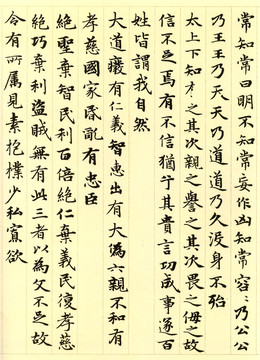 常知常曰明不知常妄作凶知常容々乃公公
乃王王乃天天乃道道乃久没身不殆
太上下知有之其次親之譽之其次畏之侮之故
信不足焉有不信猶兮其貴言功成事遂百
姓皆謂我自然
大道癈有仁義智惠出有大偽六親不和有
孝慈國家昏亂有忠臣
絕聖棄智民利百倍絕仁棄義民復孝慈
絕巧棄利盜賊無有此三者以為文不足故
令有所屬見素抱樸少私寡欲